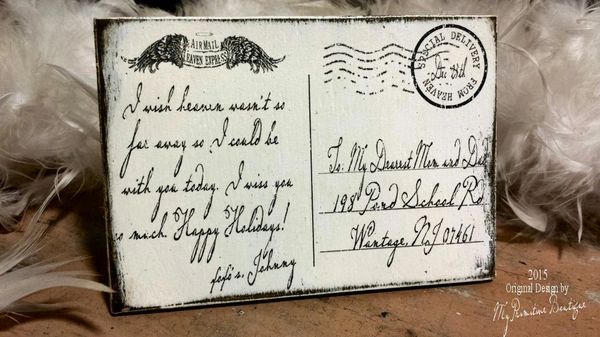 AIR MAIL
HEAVEN EXPRESS
I wish heaven wasn't so
far away so I could be
with you today. I miss you
so much. Happy Holidays!
xoxo's, Johnny
SPECIAL DELIVERY FROM HEAVEN
To: My Dearest Mom and Dad
198 Pond School Rd
Wantage, NJ 07461
2015
Original Design by
My Primitive Boutique